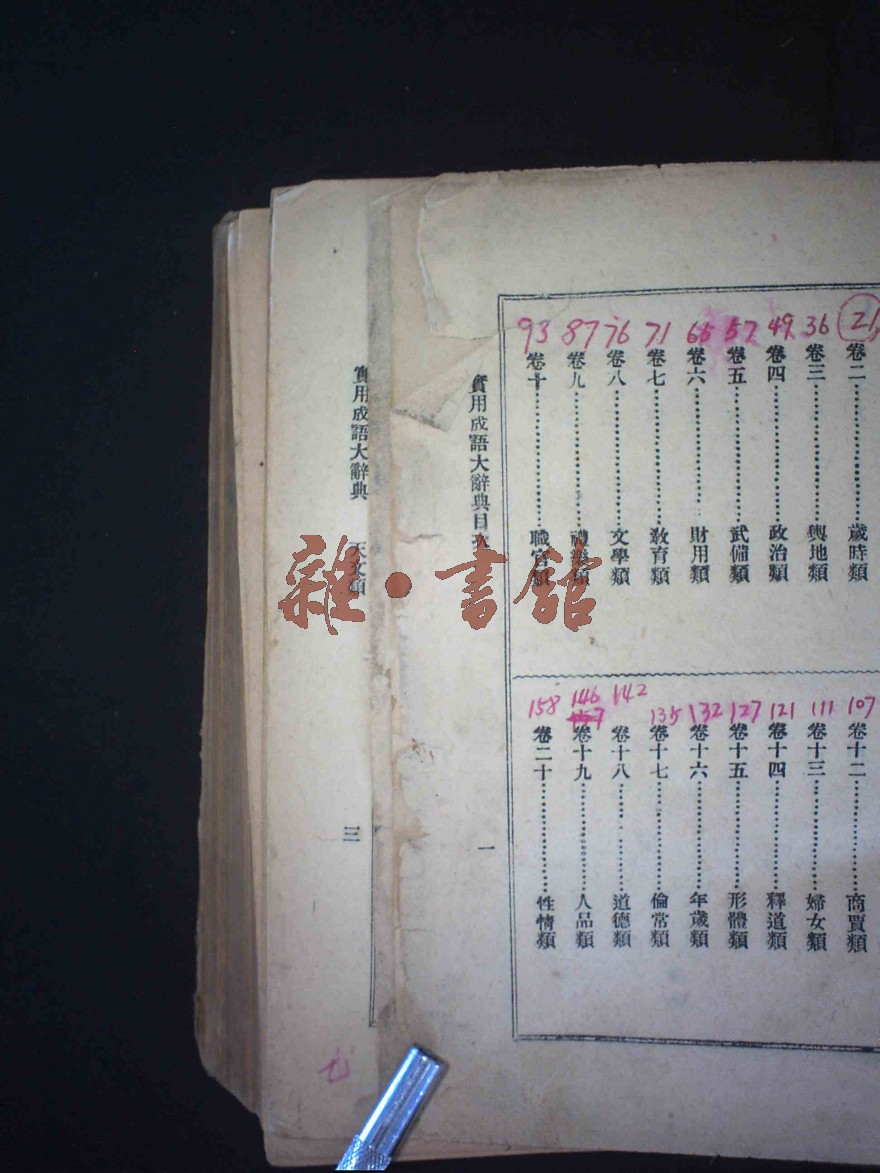 21
卷二………………歲時類
36
卷三………………輿地類
49
卷四………………政治類
57
卷五………………武備類
66
卷六………………財用類
71
卷七………………敎育類
76
卷八………………文學類
87
卷九………………禮樂類
93
卷十………………職官類
107
卷十二………………商賈類
111
卷十三………………婦女類
121
卷十四………………釋道類
127
卷十五………………形體類
132
卷十六………………年歲類
135
卷十七………………倫常類
142
卷十八………………道德類
146
157
卷十九………………人品類
158
卷二十………………性情類
實用成語大辭典目次
一
實用成語大辭典 天文類
三
雜·書館